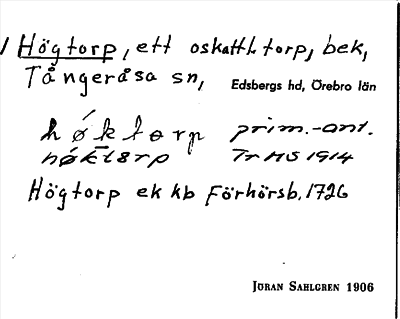 / Högtorp, ett oskattl. torp, bek,
Tångeråsa sn, Edsbergs hd, Örebro län
høktorp prim.-ant.
nøktørp Tr HS 1914
Högtorp ek kb Förhörsb. 1726
JÖRAN SAHLGREN 1906